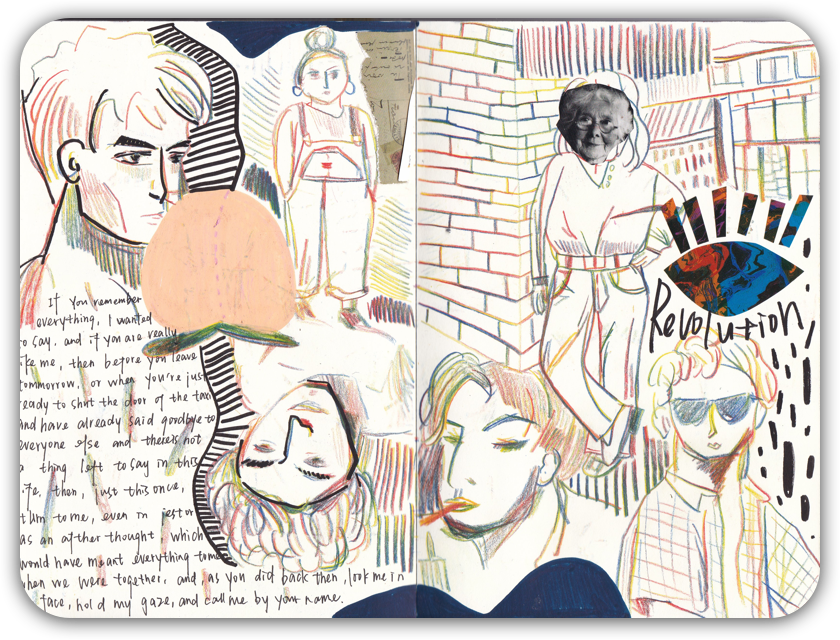 If you remember
everything, I wanted
to say, and if you are really
ike me, then before you leave
tommorrow, or when you're just
ready to shut the door of the taxi
and have already said goodbye to
everyone else and there's not
a thing left to say in this
ife, then, just this once,
turn to me, even in jest or
as an afther thought, which
would have meant everything to me
when we were together, and, as you did back then, look me in
face, hold my gaze, and call me by your name.
Revolution